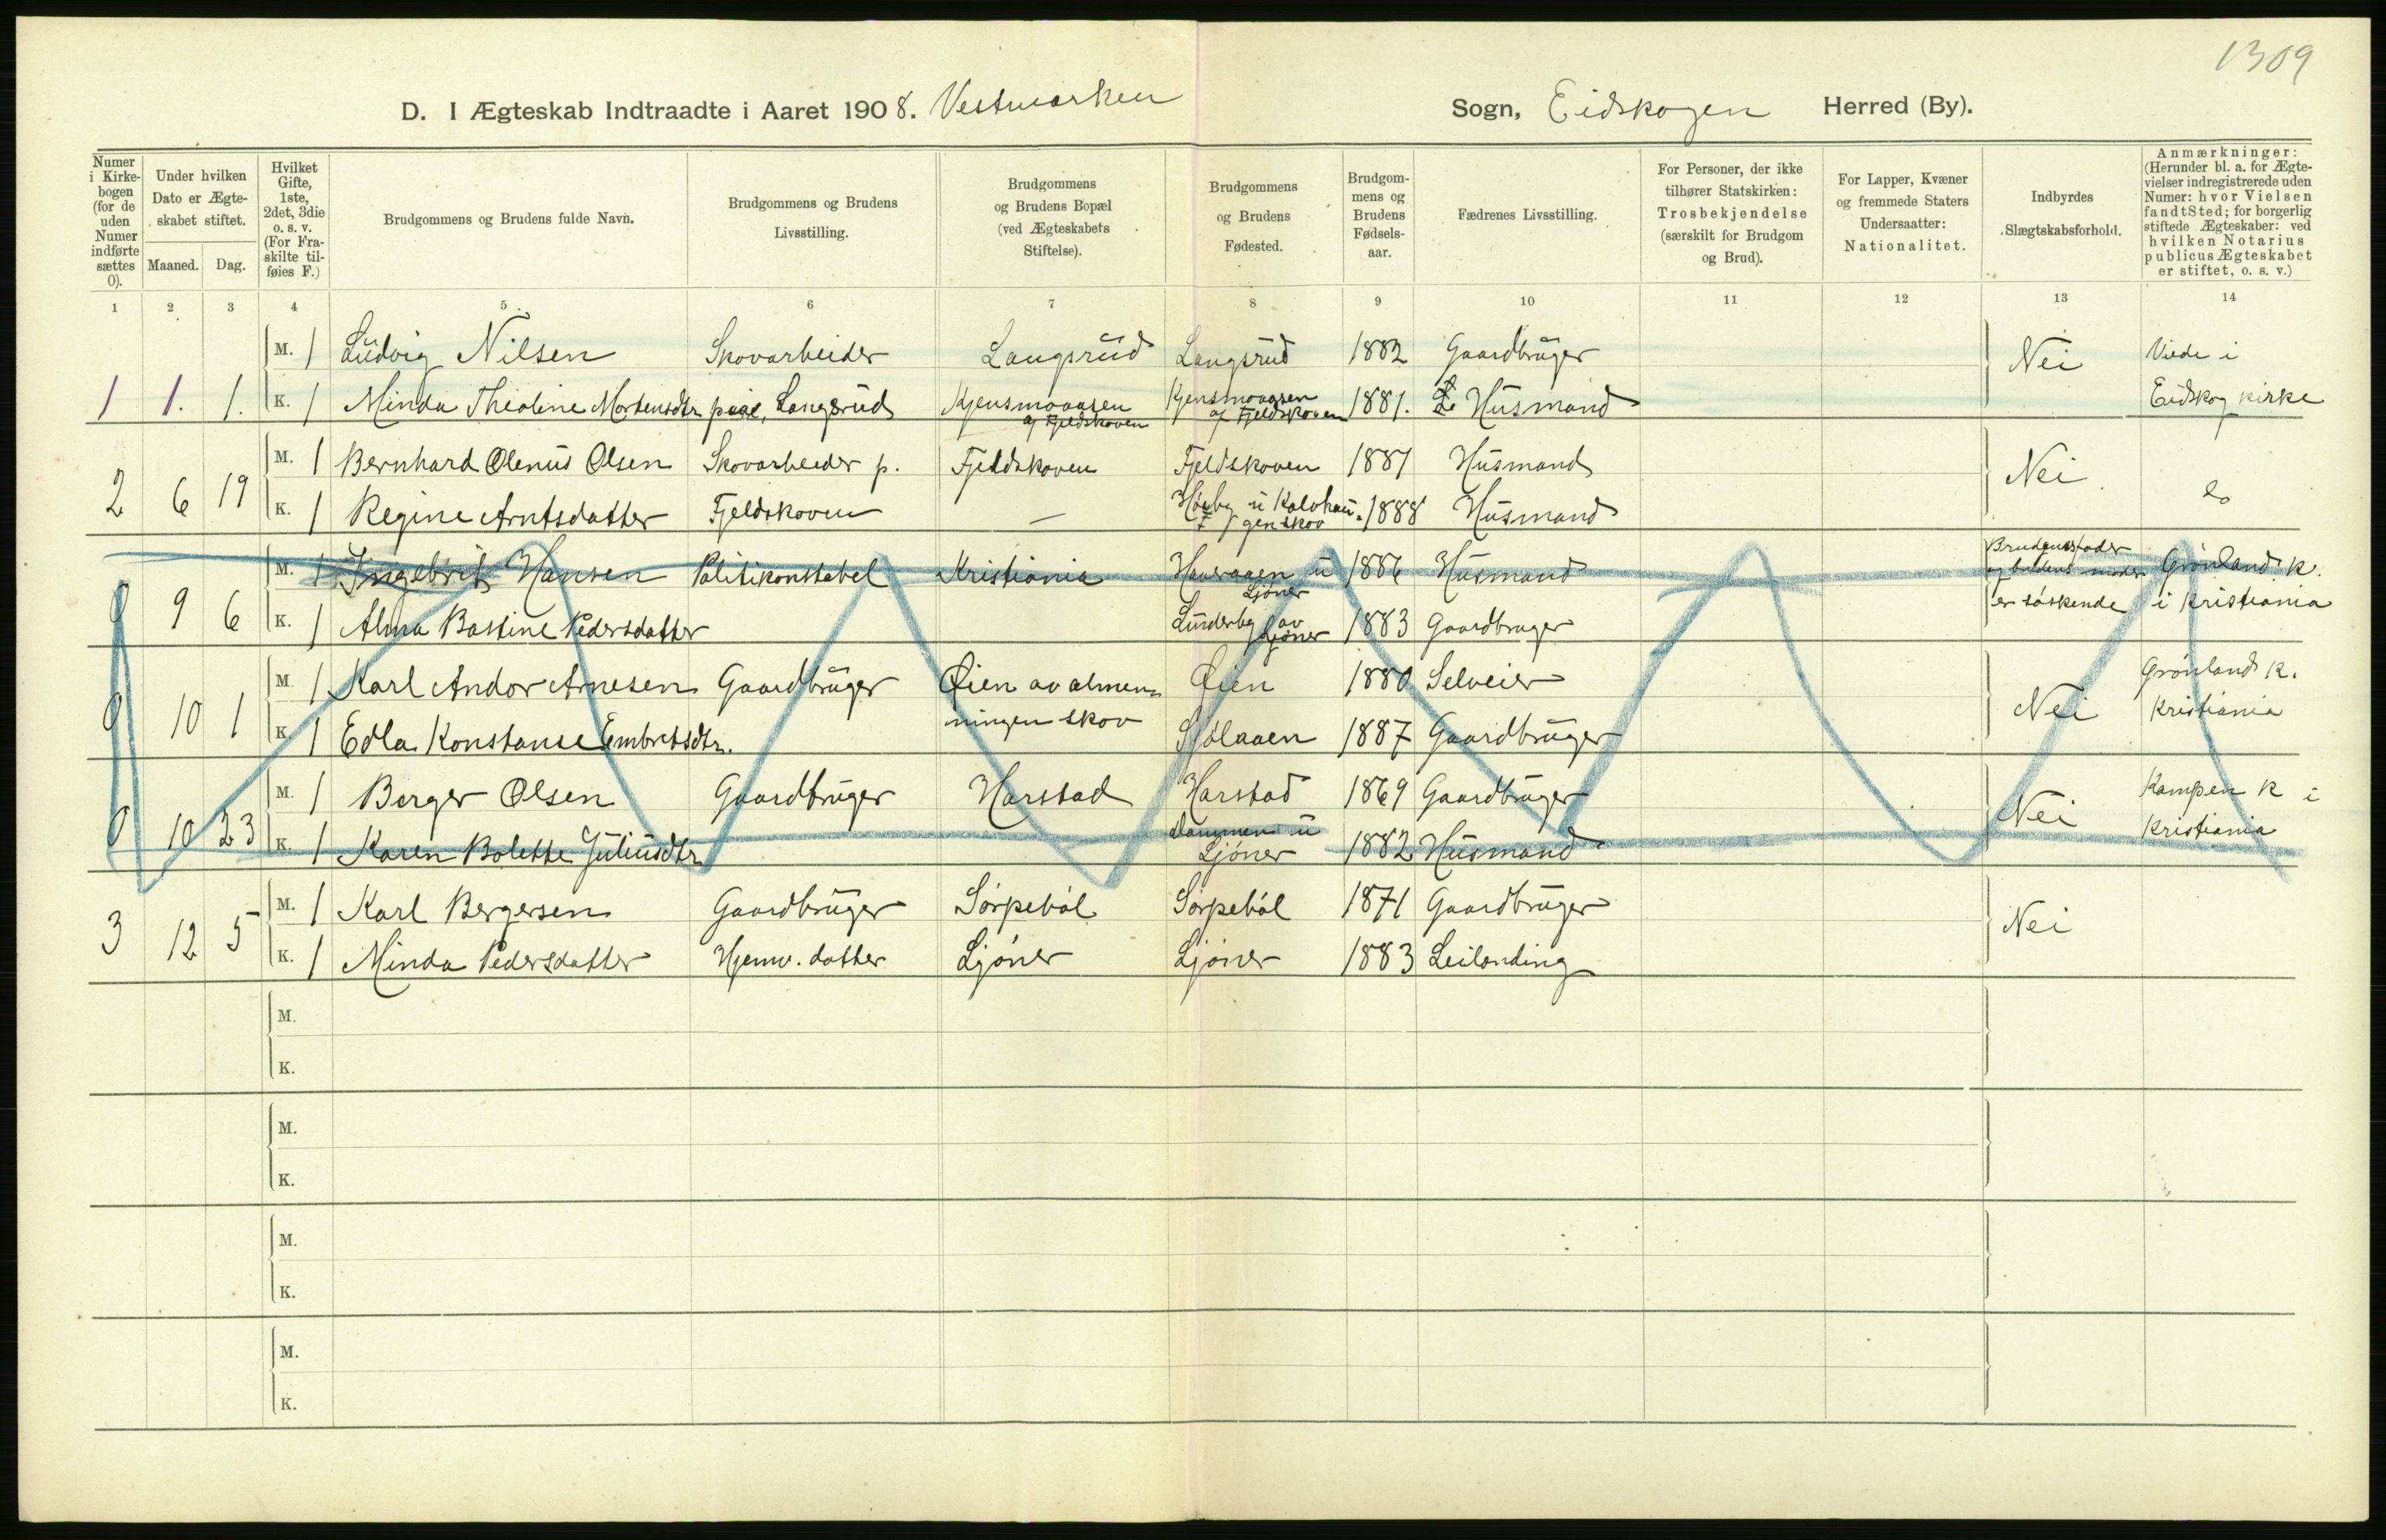 1309
D. I Ægteskab Indtraadte i Aaret 1908. Vestmarken Sogn, Eidskogen Herred (By).
Numer i Kirkebogen (for de uden Numer indførte sættes 0).
Under hvilken Dato er Ægteskabet stiftet.
Maaned. Dag.
Hvilket Gifte, 1ste, 2det, 3die o. s. v. (For Fraskilte tilføies F.)
Brudgommens og Brudens fulde Navn.
Brudgommens og Brudens Livsstilling.
Brudgommens og Brudens Bopæl (ved Ægteskabets Stiftelse).
Brudgommens og Brudens Fødested.
Brudgommens og Brudens Fødselsaar.
Fædrenes Livsstilling.
For Personer, der ikke tilhører Statskirken: Trosbekjendelse (særskilt for Brudgom og Brud).
For Lapper, Kvæner og fremmede Staters Undersaatter: Nationalitet.
Indbyrdes Slægtskabsforhold.
Anmærkninger: (Herunder bl. a. for Ægtevielser indregistrerede uden Numer: hvor Vielsen fandt Sted; for borgerlig stiftede Ægteskaber: ved hvilken Notarius publicus Ægteskabet er stiftet, o. s. v.)
1 2 3 4 5 6 7 8 9 10 11 12 13 14
M. 1 Ludvig Nilsen Skovarbeider Langsrud Langsrud 1882 Gaardbruger Nei Viede i
1 1. 1. K. 1 Minda Theoline Mortensdtr pige, Langsrud Kjensmoaasen af Fjeldskoven Kjensmoaasen af Fjeldskoven 1881. Husmand Eidskog kirke
M. 1 Bernhard Olenus Olsen Skovarbeider p. Fjeldskoven Fjeldskoven 1881 Husmand Nei
2 6 19 K. 1 Regine Arntsdatter Fjeldskoven — 1888 Husmand do
M. 1 Ingebrit Hansen Politikonstabel Kristiania u Ljøner 1886 Husmand Brudens fader Grønland k.
0 9 6 K. 1 Alma Bastine Pedersdatter Lunderby av Ljøner 1883 Gaardbruger er søskende i Kristiania
M. 1 Karl Andor Arnesen Gaardbruger Øien av almen- Øien 1880 Selveier Nei Grønland k.
0 10 1 K. 1 Edla Konstanse Embretsdtr. ningen skov 1887 Gaardbruger Kristiania
M. 1 Berger Olsen Gaardbruger Harstad Harstad 1869 Gaardbruger Nei Kampen k i
0 10 23 K. 1 Karen Bolette Juliusdtr Dammen u Ljøner 1882 Husmand Kristiania
M. 1 Karl Bergersen Gaardbruger Sørpebøl Sørpebøl 1871 Gaardbruger Nei
3 12 5 K. 1 Minda Pedersdatter Hjemv. datter Ljøner Ljøner 1883 Leilending
M.
K.
M.
K.
M.
K.
M.
K.